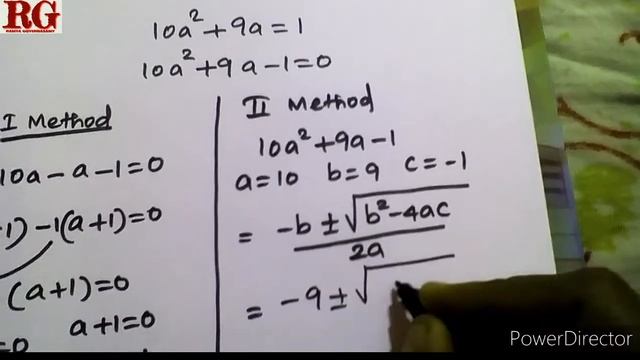 RG
10a² + 9a = 1
10a² + 9a - 1 = 0
I Method
10a - a - 1 = 0
1) - 1(a + 1) = 0
(a + 1) = 0
a + 1 = 0
II Method
10a² + 9a - 1
a = 10 b = 9 c = -1
= -b ± √b² - 4ac
2a
= -9 ± √
PowerDirector